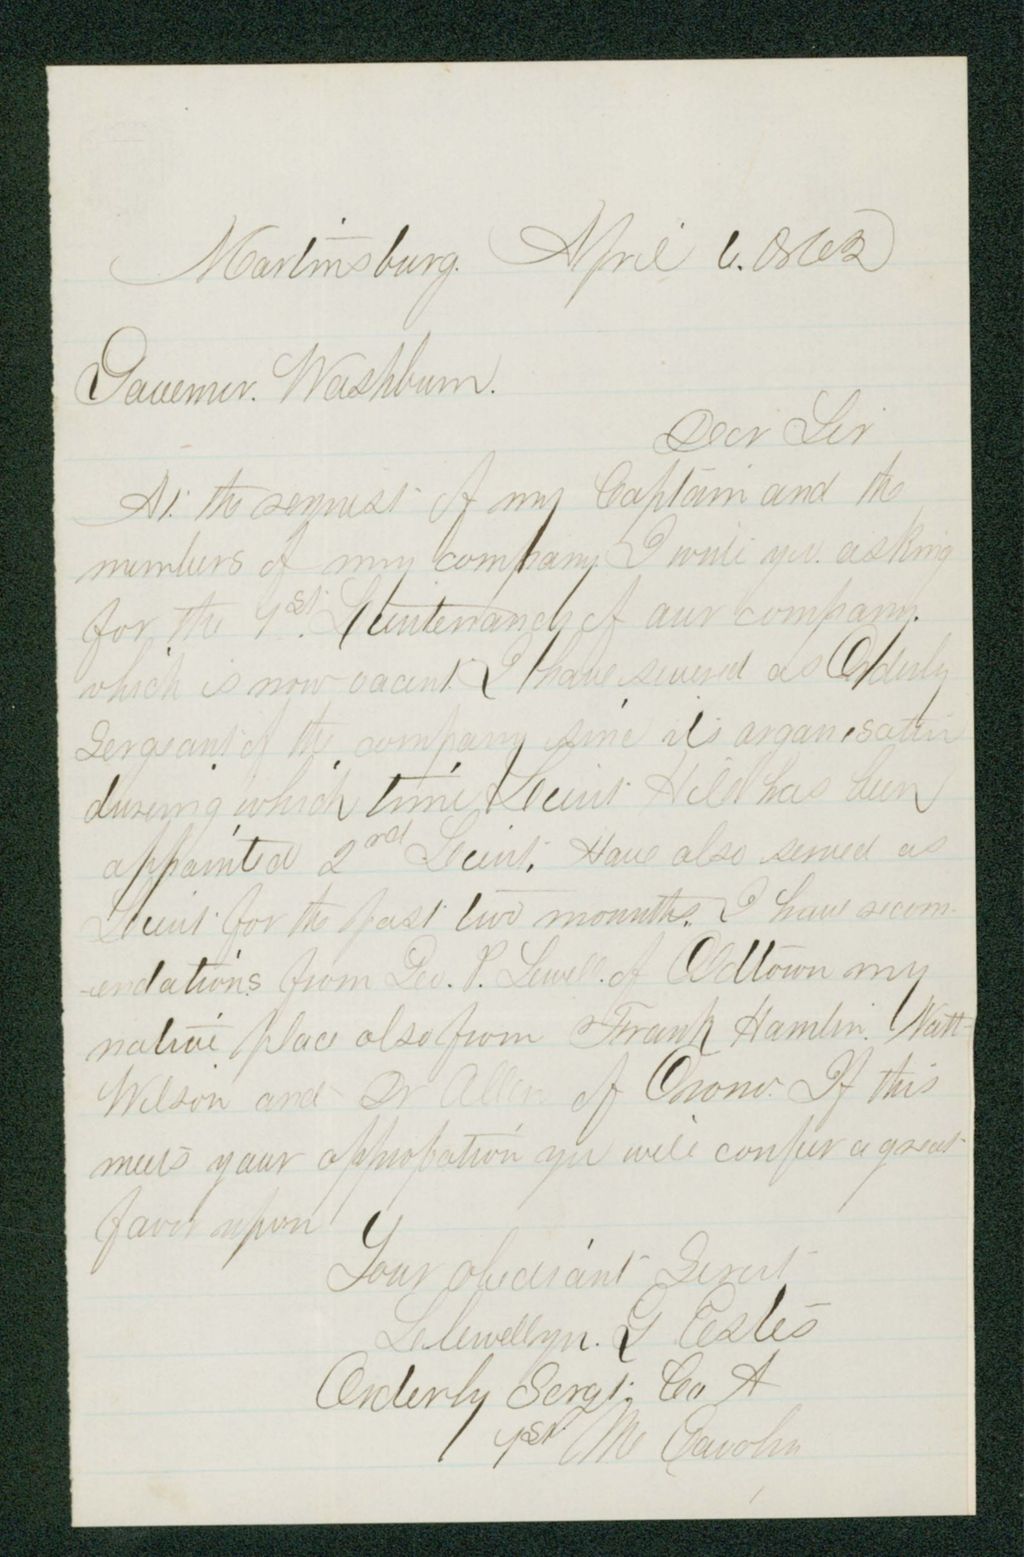 Martinsburg. April 6. 1862
Governor. Washburn.
Dear Sir
At the request of my Captain and the
members of my company I write you asking
for the 1st. Lieutenancy of our company.
which is now vacent I have severed as Orderly
Sergeant of the company sine its organisation
dureing which time Lieut Hill has been
appainted 2nd Lieut. Have also served as
Lieut for the past two mounths. I have recom-
-endations from Geo. P. Sewell. of Oldtown my
native place also from Frank Hamlin. Natt
Wilson and Dr Allen of Orono. If this
meets your approbation you will confer a great
favor upon
Your obediant Servt
Llewellyn. G Estes
Orderly Sergt. Co A
1st Me Cavalry